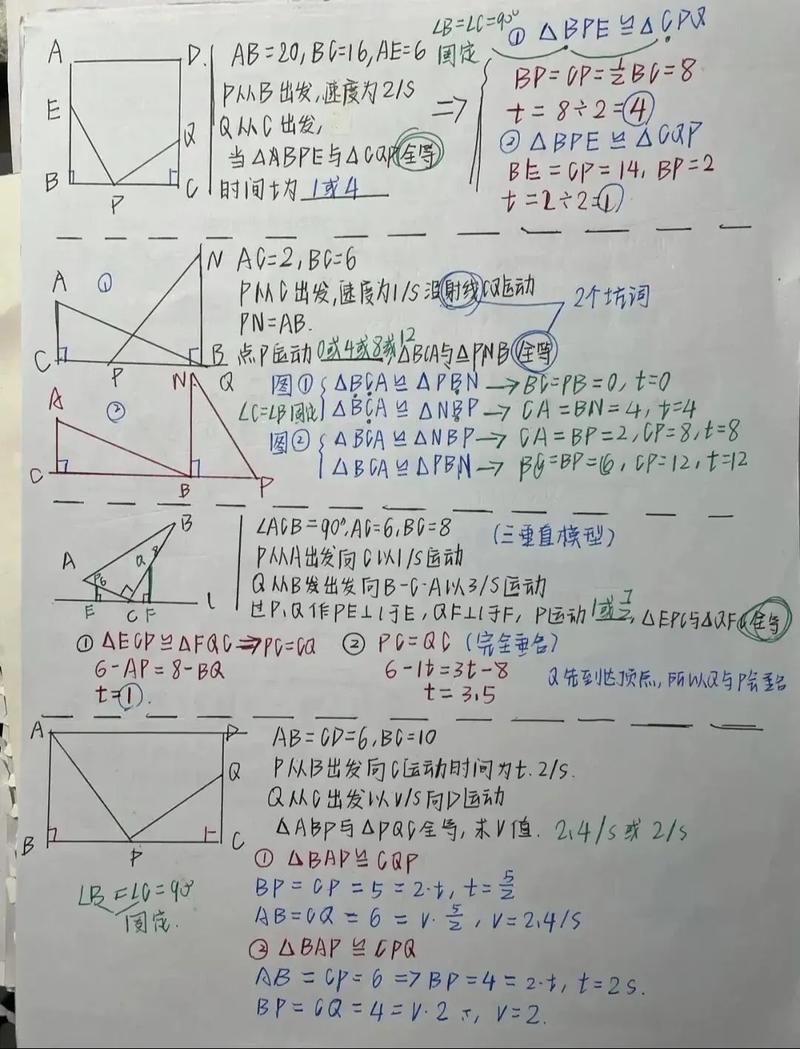 A D. E Q B P C
AB=20,BC=16,AE=6
P从B出发,速度为2/s
Q从C出发,
当△ABPE与△CQP全等
时间t为 1或4
∠B=∠C=90°
固定
⇒
① △BPE≌△CPQ
BP=CP=½BC=8
t=8÷2=④
② △BPE≌△CQP
BE=CP=14, BP=2
t=2÷2=①
A ① N C P B Q
AC=2,BC=6
P从C出发,速度为1/s沿射线CQ运动
2个坑词
PN=AB.
点P运动0或4或8或12,△BCA与△PNB全等
A ② N C B P
∠C=∠B固定
图① △BCA≌△PBN→BC=PB=0, t=0
△BCA≌△NBP→CA=BN=4, t=4
图② △BCA≌△NBP→CA=BP=2,CP=8,t=8
△BCA≌△PBN→BC=BP=6,CP=12,t=12
A B P 6 Q 8 E C F l
∠ACB=90°,AC=6,BC=8 (三垂直模型)
P从A出发向C以1/s运动
Q从B发出发向B-C-A以3/s运动
过P,Q作PE⊥l于E,QF⊥l于F, P运动1或7/2,△EPC与△QFC全等
① △ECP≌△FQC⇒PC=CQ
6-AP=8-BQ
t=①.
② PC=QC(完全重合)
6-1t=3t-8
t=3.5
Q先到达顶点,所以Q与P会重合
A D Q B P C
AB=CD=6,BC=10
P从B出发向C运动时间为t. 2/s.
Q从C出发以v/s向D运动
△ABP与△PQC全等,求V值. 2.4/s或2/s
① △BAP≌CQP
∠B=∠C=90°
固定.
BP=CP=5=2·t, t=5/2
AB=CQ=6=v·5/2, v=2.4/s
② △BAP≌CPQ
AB=CP=6⇒BP=4=2·t, t=2s.
BP=CQ=4=v·2, v=2.